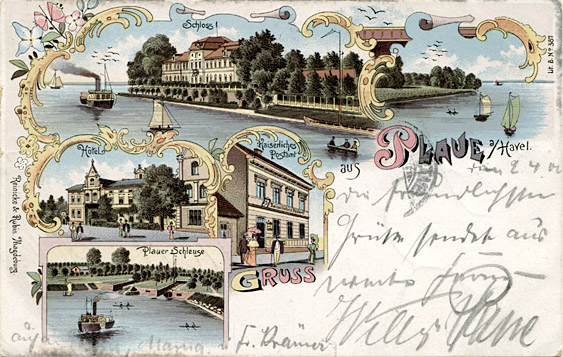 Schloss
Lit. B. No 387
Hotel
Kaiserliches
Postamt
GRUSS
aus
PLAUE a/Havel.
Plauer Schleuse
Reinicke & Rubin, Magdeburg.
den 2.4.00
die freundlichsten
Grüße sendet aus
Willy
u. Fr. Krämer